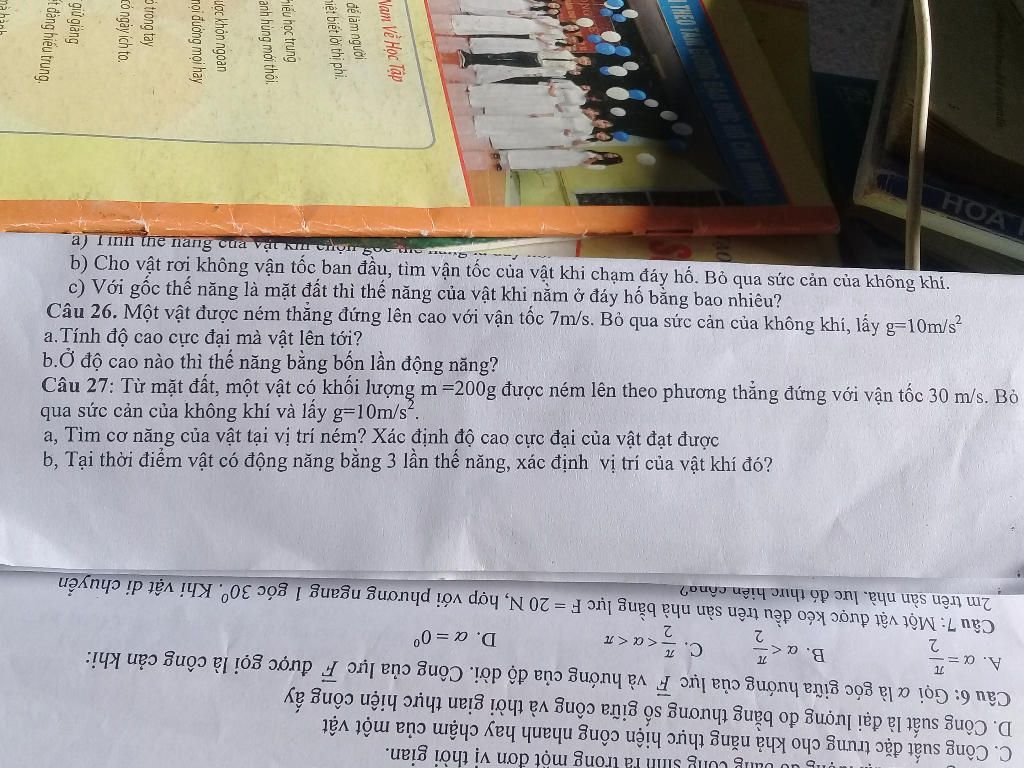 Nam Về Học Tập
để làm người
biết lời thị phi.
hiếu học trung
anh hùng mới thôi.
khôn ngoan
đường mọi hay
trong tay
có ngày ích to.
giữ giàng
đăng hiếu trung,
HOA
a) Tính thế năng của vật khi chọn gốc thế năng
b) Cho vật rơi không vận tốc ban đầu, tìm vận tốc của vật khi chạm đáy hố. Bỏ qua sức cản của không khí.
c) Với gốc thế năng là mặt đất thì thế năng của vật khi nằm ở đáy hố bằng bao nhiêu?
Câu 26. Một vật được ném thẳng đứng lên cao với vận tốc 7m/s. Bỏ qua sức cản của không khí, lấy g=10m/s²
a.Tính độ cao cực đại mà vật lên tới?
b.Ở độ cao nào thì thế năng bằng bốn lần động năng?
Câu 27: Từ mặt đất, một vật có khối lượng m =200g được ném lên theo phương thẳng đứng với vận tốc 30 m/s. Bỏ
qua sức cản của không khí và lấy g=10m/s².
a, Tìm cơ năng của vật tại vị trí ném? Xác định độ cao cực đại của vật đạt được
b, Tại thời điểm vật có động năng bằng 3 lần thế năng, xác định vị trí của vật khí đó?
công sinh ra trong một đơn vị thời gian.
C. Công suất đặc trưng cho khả năng thực hiện công nhanh hay chậm của một vật
D. Công suất là đại lượng đo bằng thương số giữa công và thời gian thực hiện công ấy
Câu 6: Gọi α là góc giữa hướng của lực F⃗ và hướng của độ dời. Công của lực F⃗ được gọi là công cản khi:
A. α = π/2 B. α < π/2 C. π/2 < α < π D. α = 0⁰
Câu 7: Một vật được kéo đều trên sàn nhà bằng lực F = 20 N, hợp với phương ngang 1 góc 30⁰. Khi vật di chuyển
2m trên sàn nhà, lực đó thực hiện công?